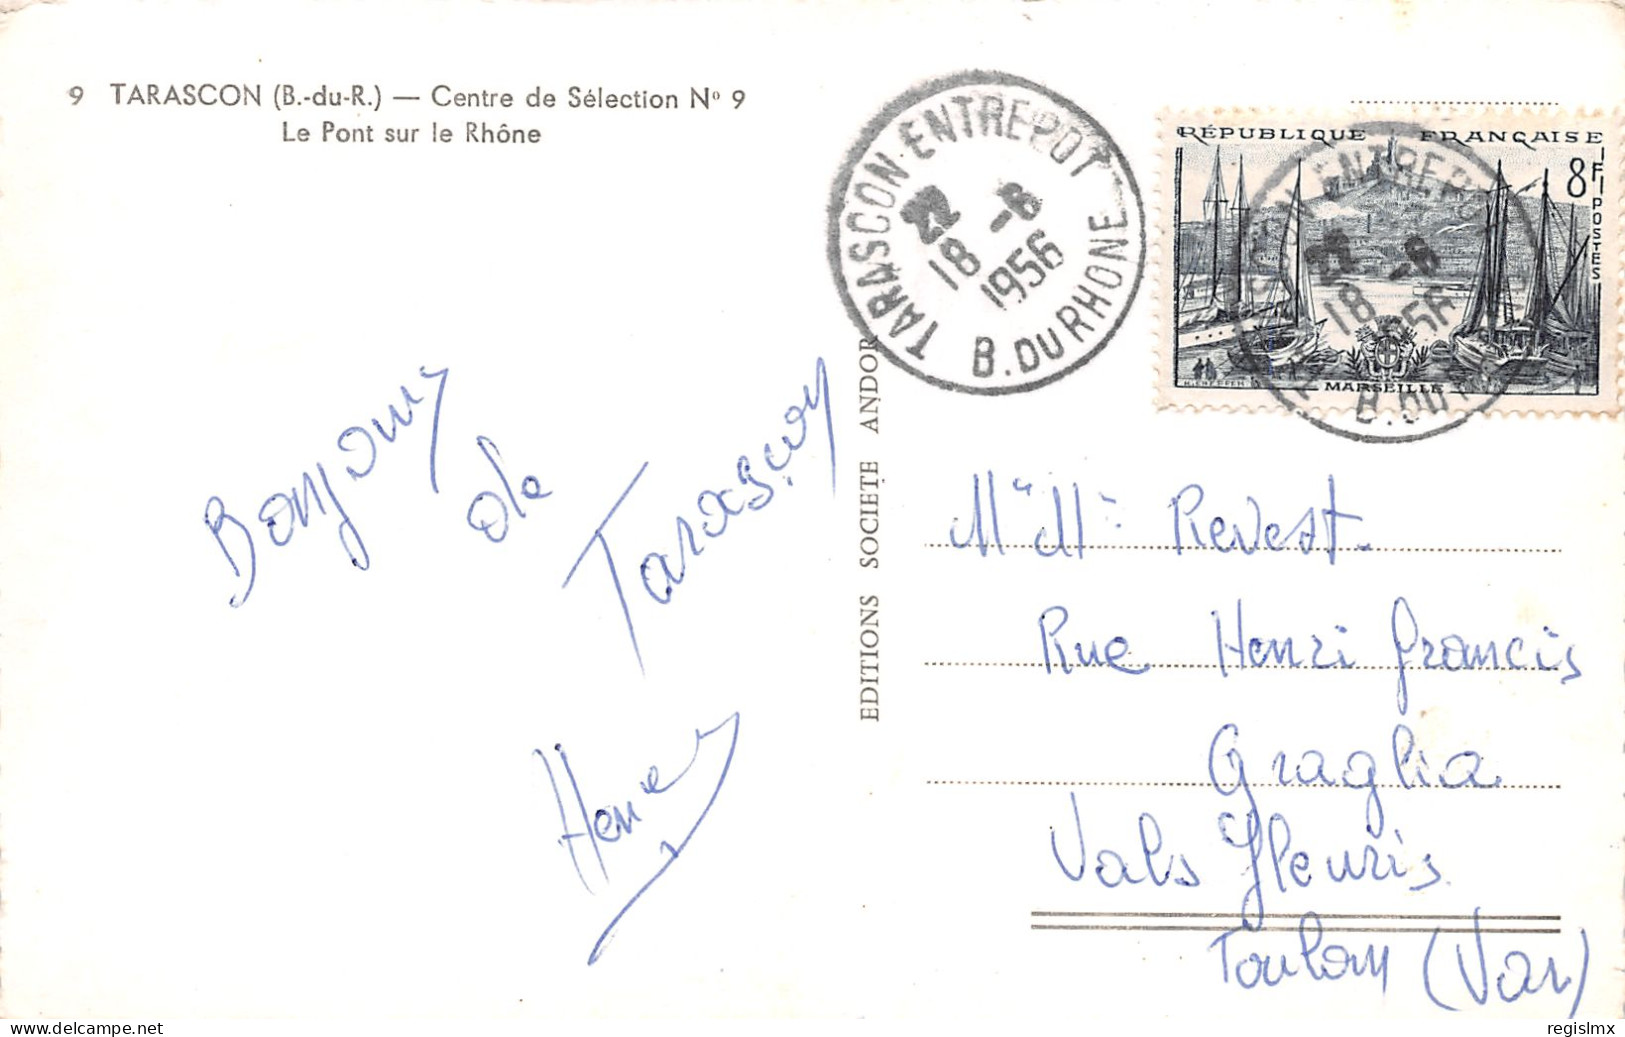 9 TARASCON (B.-du-R.) — Centre de Sélection Nº 9
Le Pont sur le Rhône
TARASCON-ENTREPOT
22
18 -6
1956
B. DU RHONE
RÉPUBLIQUE FRANÇAISE
8F
POSTES
MARSEILLE
EDITIONS SOCIETE ANDOR
Bonjour
de
Tarascon
Mr Me Revest
Rue Henri Francis
Graglia
Vals Fleuris
Toulon (Var)
www.delcampe.net
regislmx